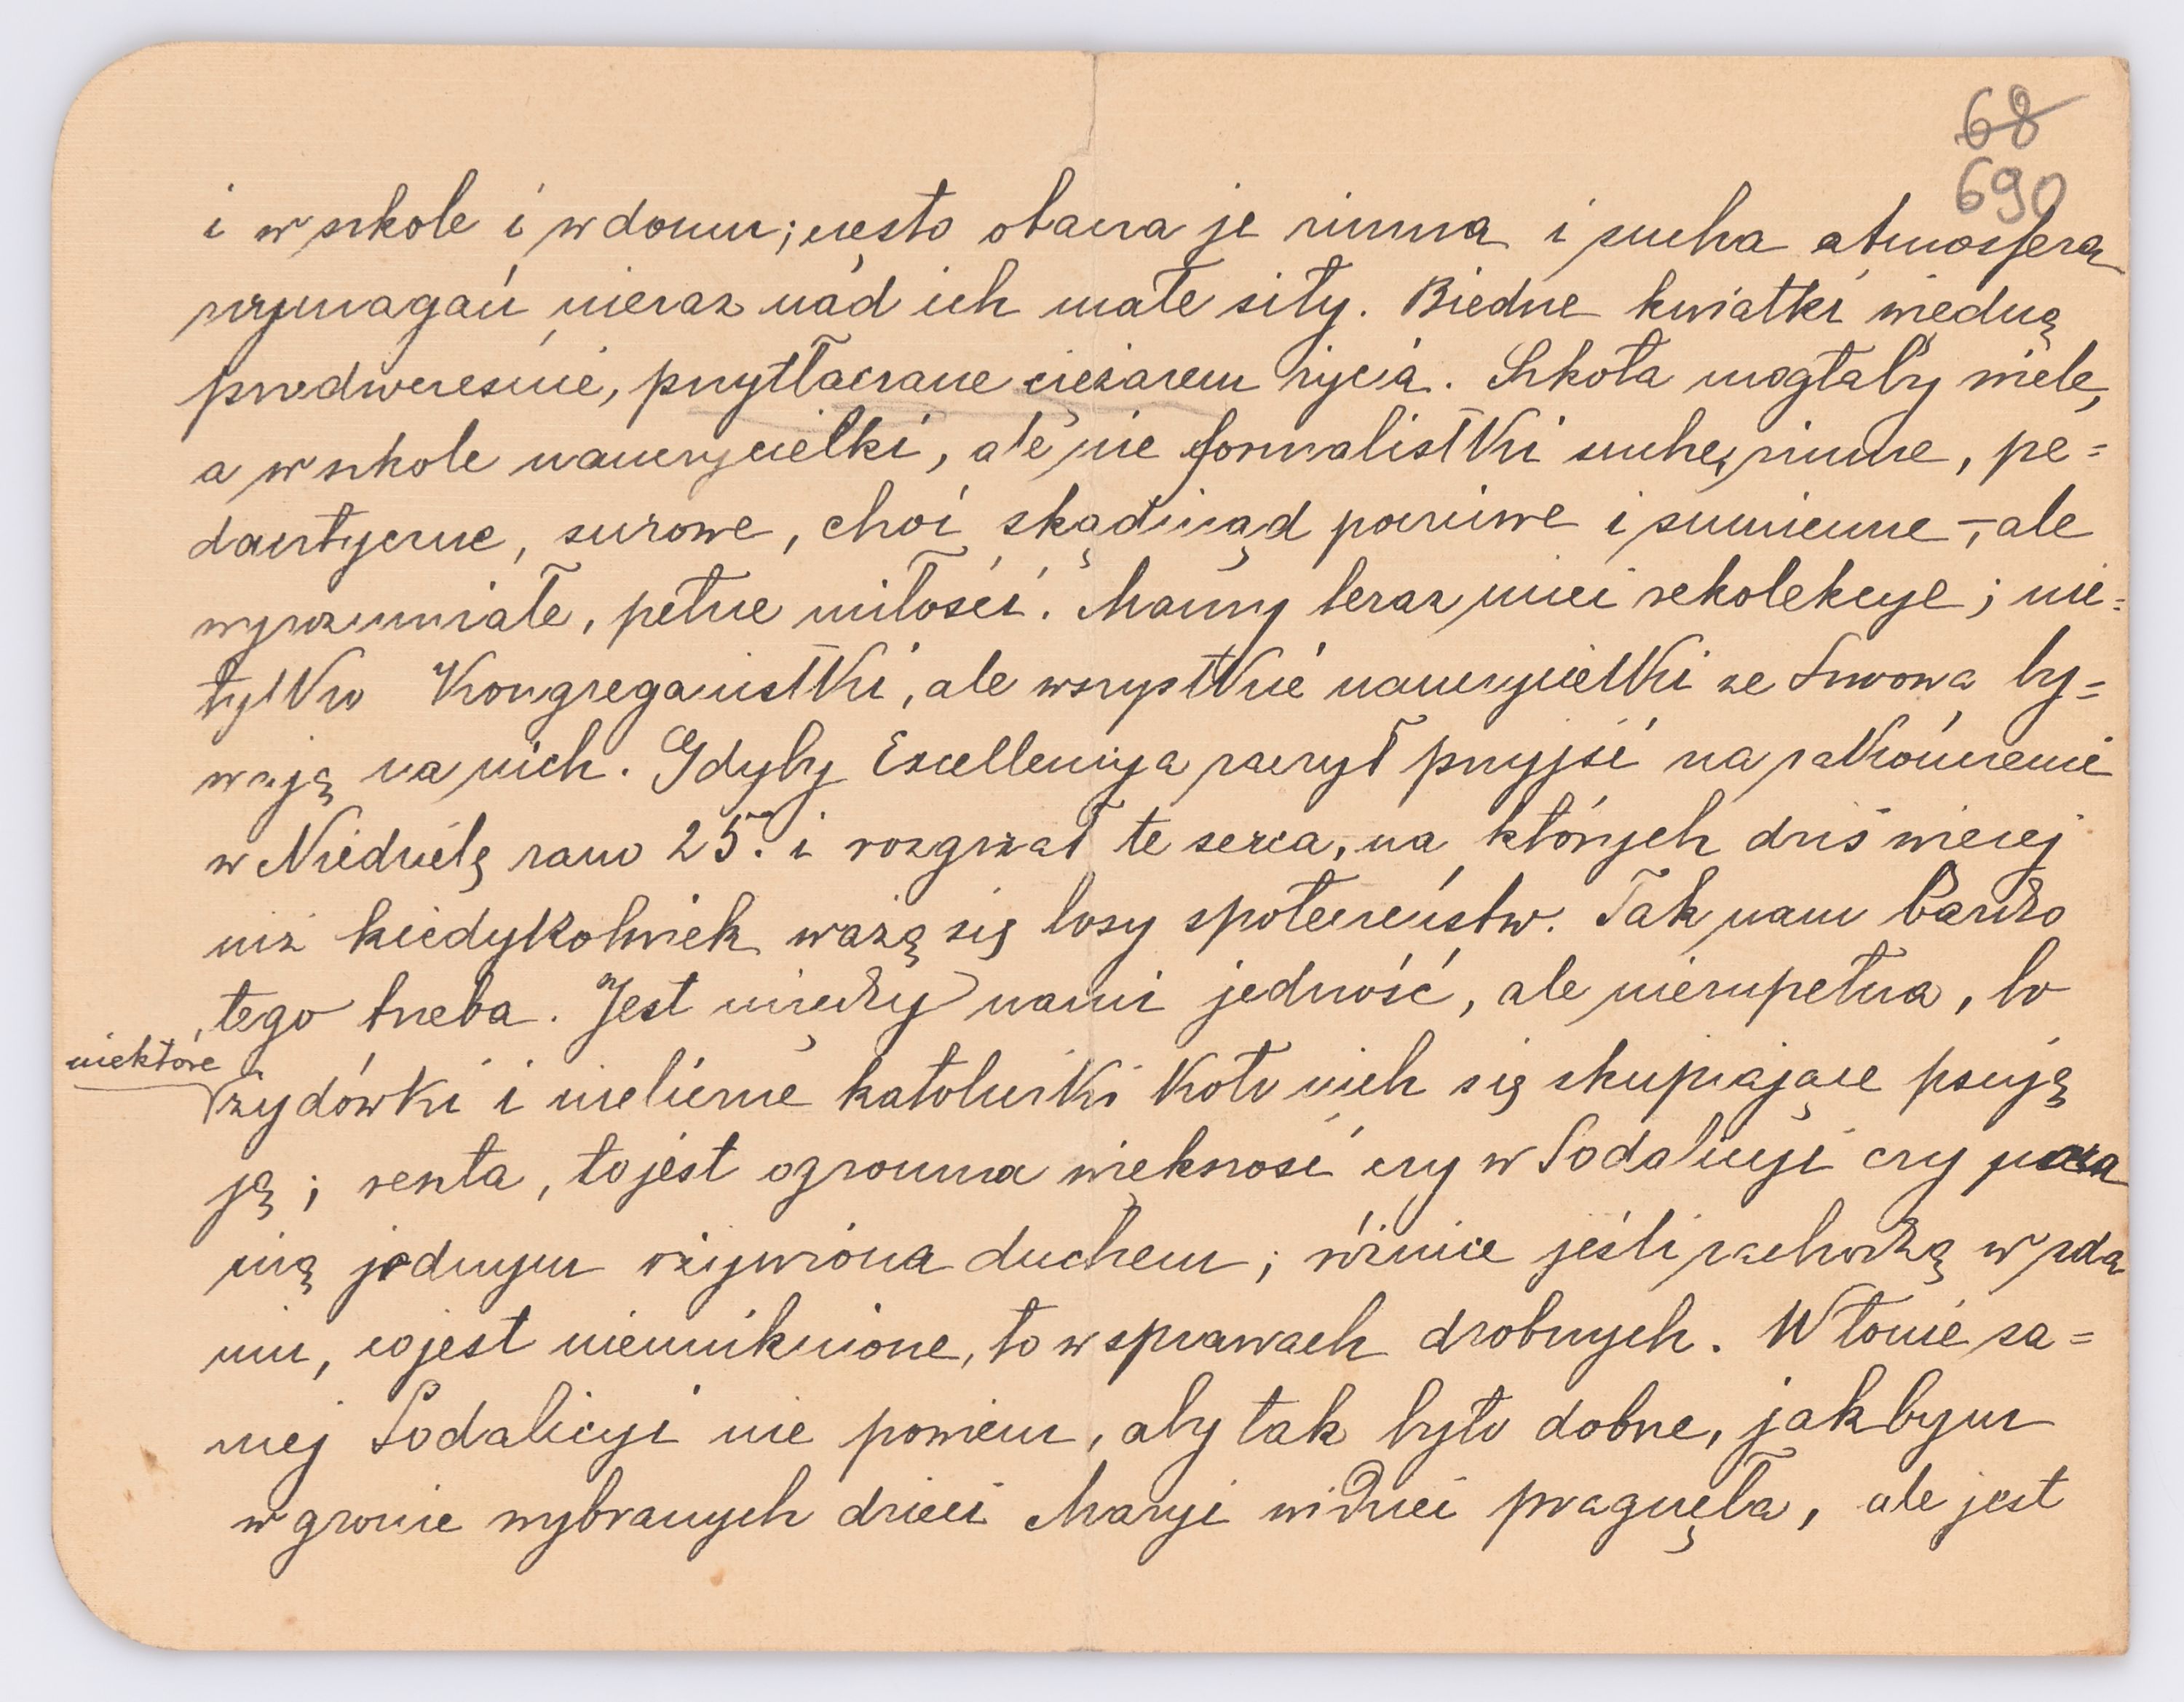 68
690
i w szkole i w domu; często otacza je zimna i sucha atmosfera
wymagań nieraz nad ich małe siły. Biedne kwiatki więdną
przedwcześnie, przytłaczane ciężarem życia. Szkoła mogłaby wiele,
a w szkole nauczycielki, ale nie formalistki suche, zimne, pe=
dantyczne, surowe, choć skądinąd poczciwe i sumienne –, ale
wyrozumiałe, pełne miłości. Mamy teraz mieć rekolekcye; nie=
tylko Kongreganistki, ale wszystkie nauczycielki ze Lwowa by=
wają na nich. Gdyby Excellencya raczył przyjść na zakończenie
w Niedzielę rano 25. i rozgrzał te serca, na których dziś więcej
niż kiedykolwiek ważą się losy społeczeństw. Tak nam bardzo
tego trzeba. Jest między nami jedność, ale niezupełna, bo
niektóre
żydówki i nieliczne katoliczki koło nich się skupiające psują
ją; reszta, to jest ogromna większość czy w Sodalicyi czy poza
nią jednym ożywiona duchem; różnice jeśli zachodzą w zda
niu, co jest nieuniknione, to w sprawach drobnych. W łonie sa=
mej Sodalicyi nie powiem, aby tak było dobrze, jakbym
w gronie wybranych dzieci Maryi widzieć pragnęła, ale jest